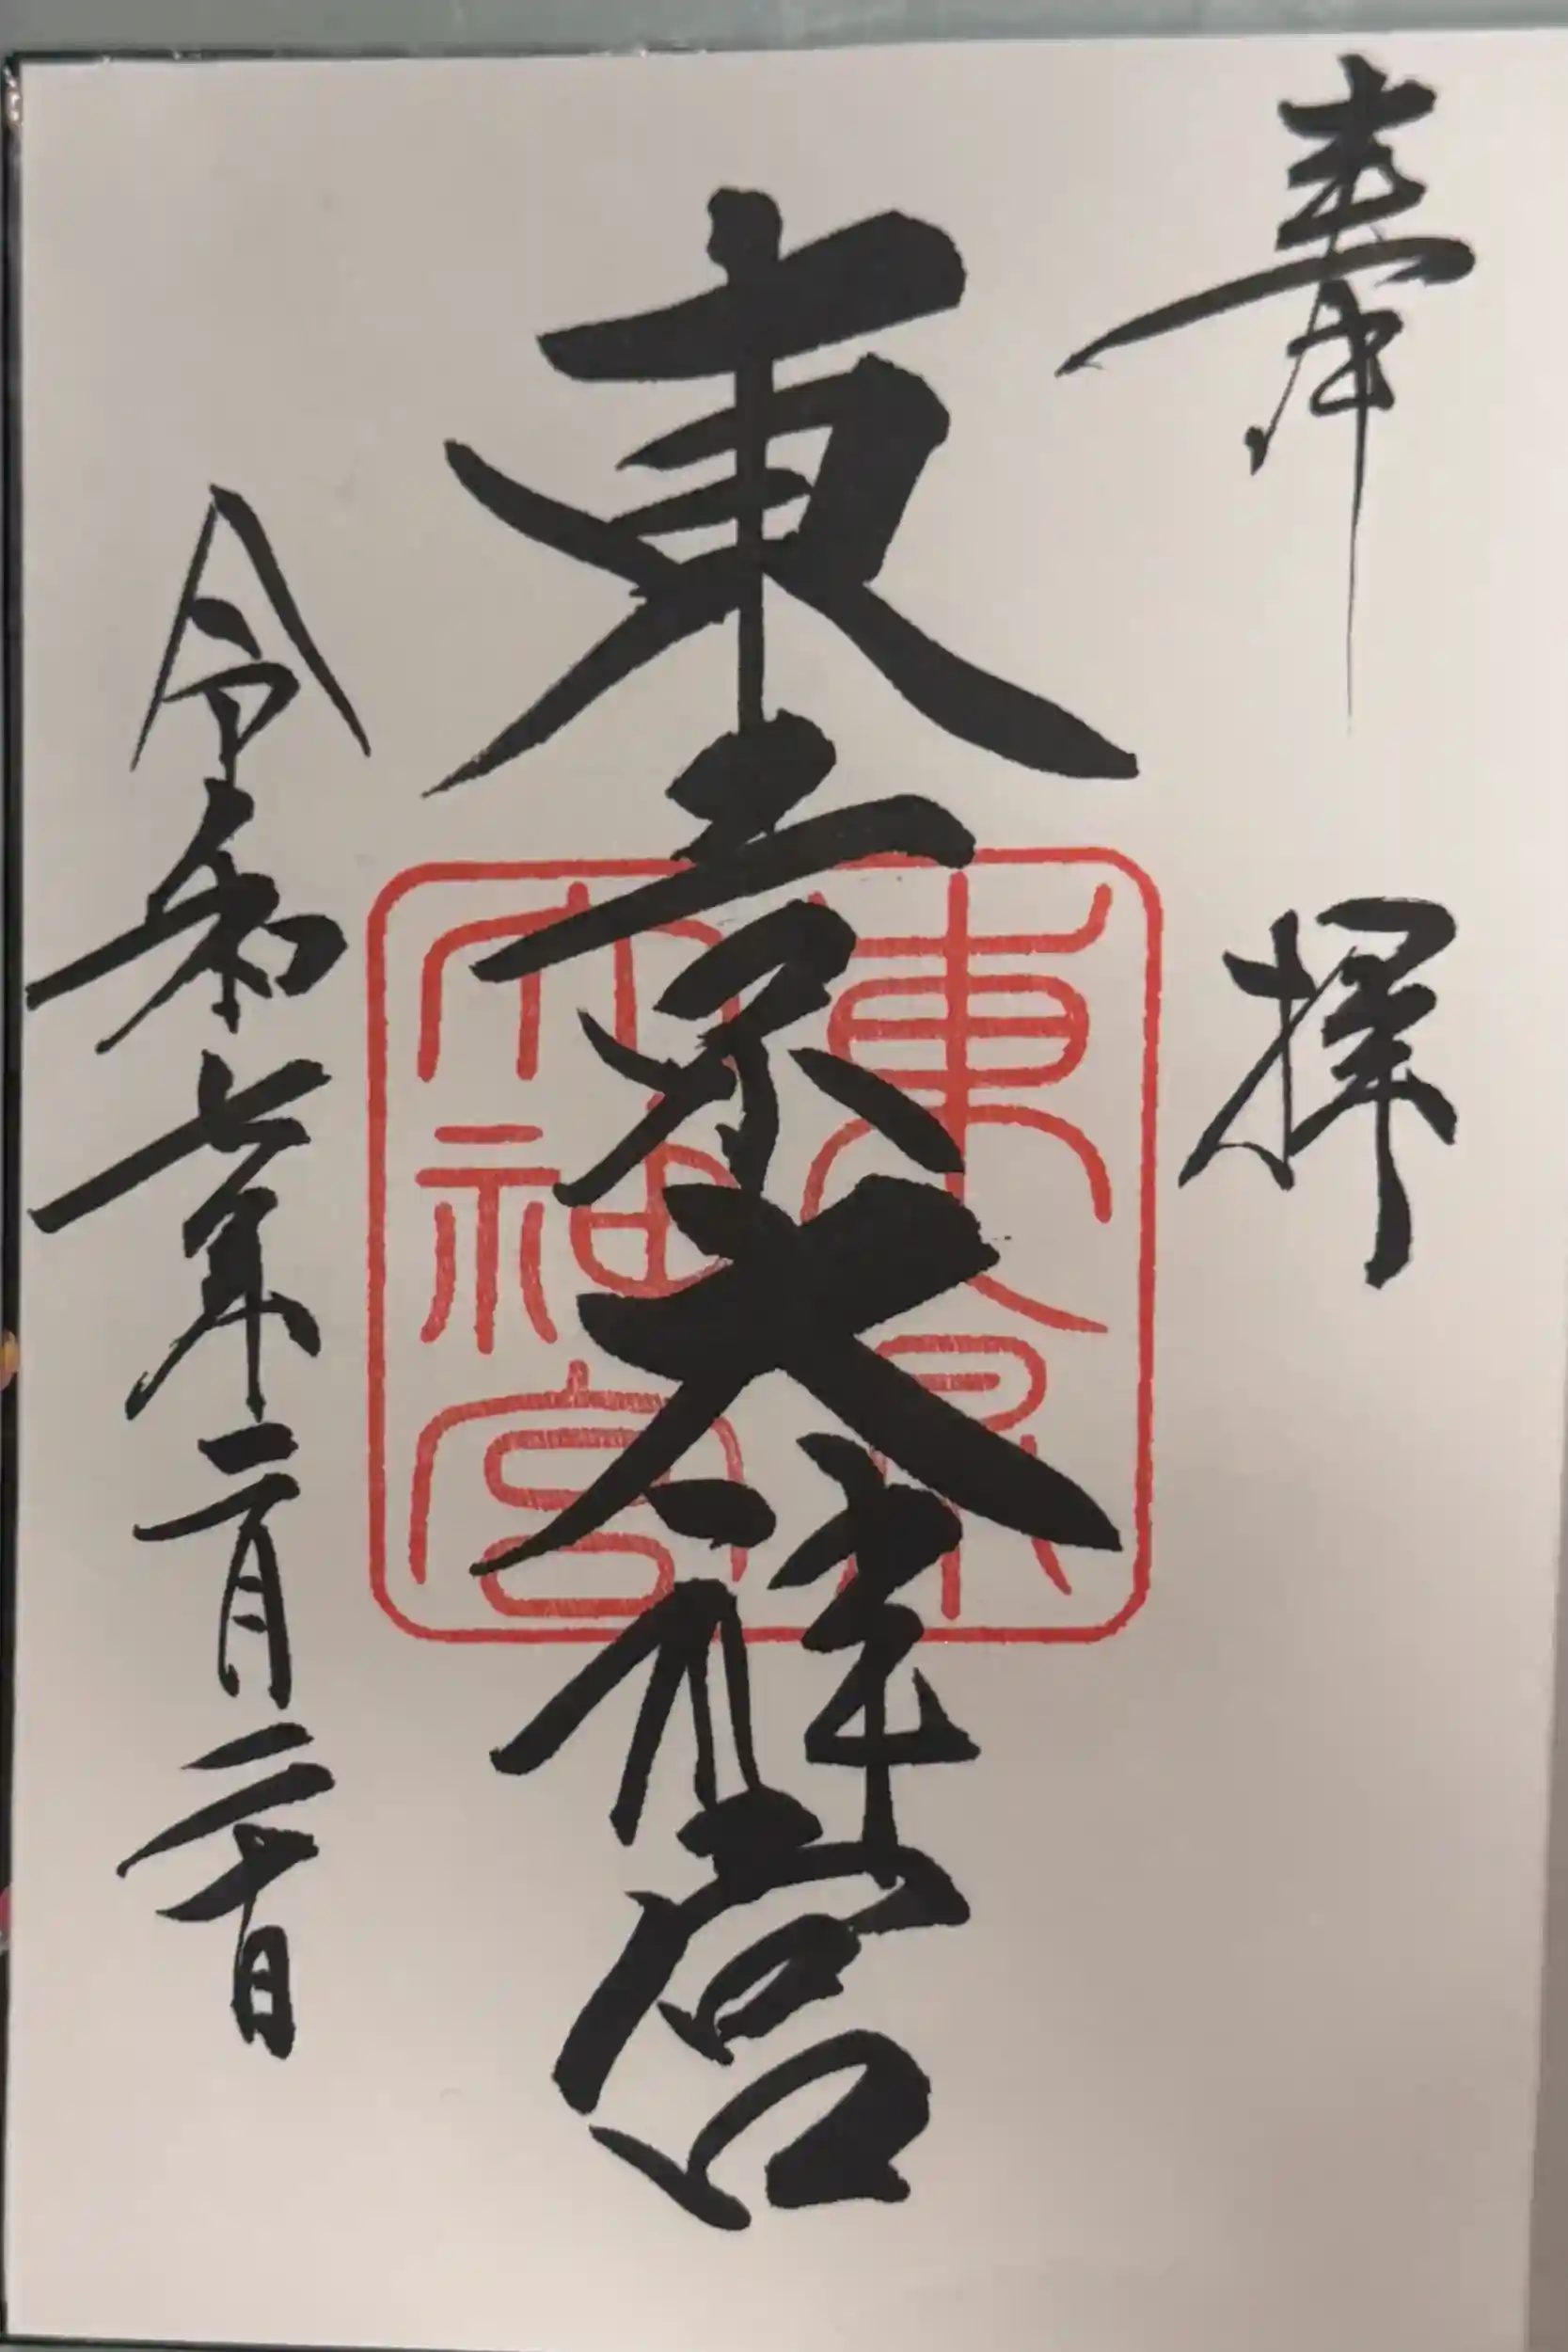 奉拝
東京大神宮
令和七年二月二十日
東京
大神宮